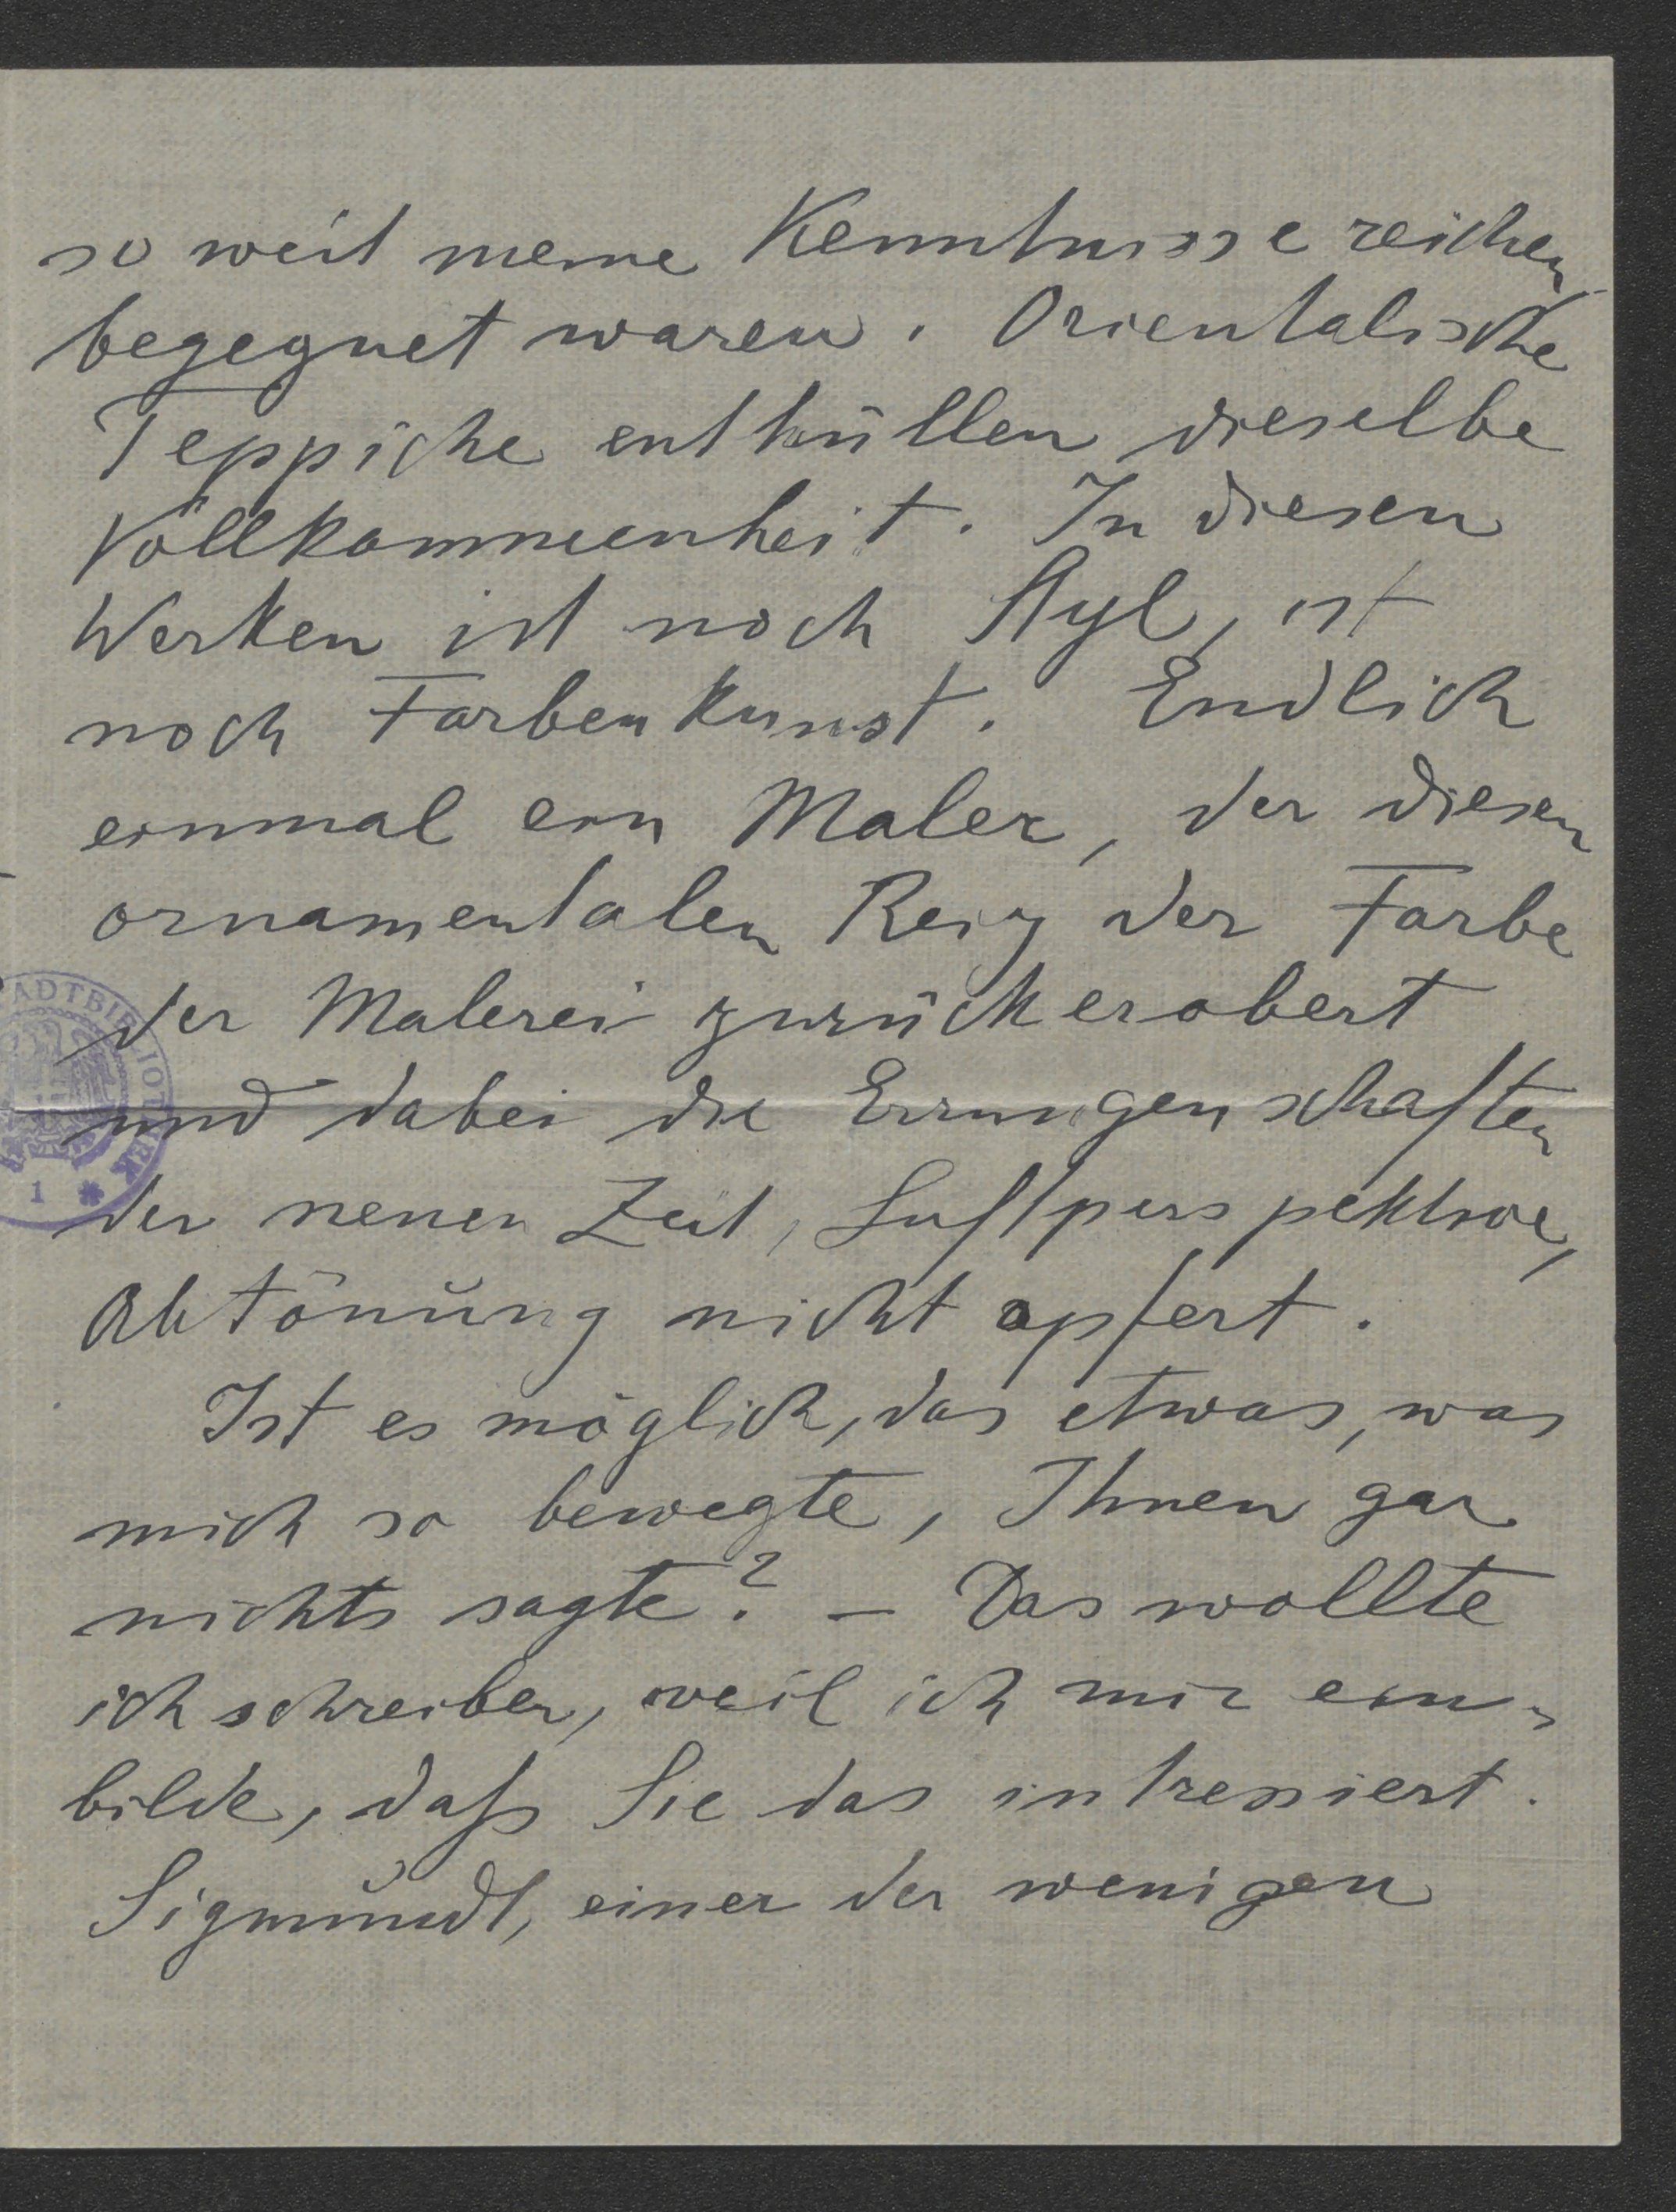 so weit meine Kenntnisse reichen
begegnet waren. Orientalische
Teppiche enthüllen dieselbe
Vollkommenheit. In diesen
Werken ist noch Styl, ist
noch Farbenkunst. Endlich
einmal ein Maler, der diesen
ornamentalen Reiz der Farbe
der Malerei zurückerobert
und dabei die Errungenschaften
der neuen Zeit, Luftperspektive,
Abtönung nicht opfert.
Ist es möglich, das etwas, was
mich so bewegte, Ihnen gar
nichts sagte? – Das wollte
ich schreiben, weil ich mir ein-
bilde, daß Sie das intressiert.
Sigmundt, einer der wenigen
STADTBIBLIOTHEK
1 *